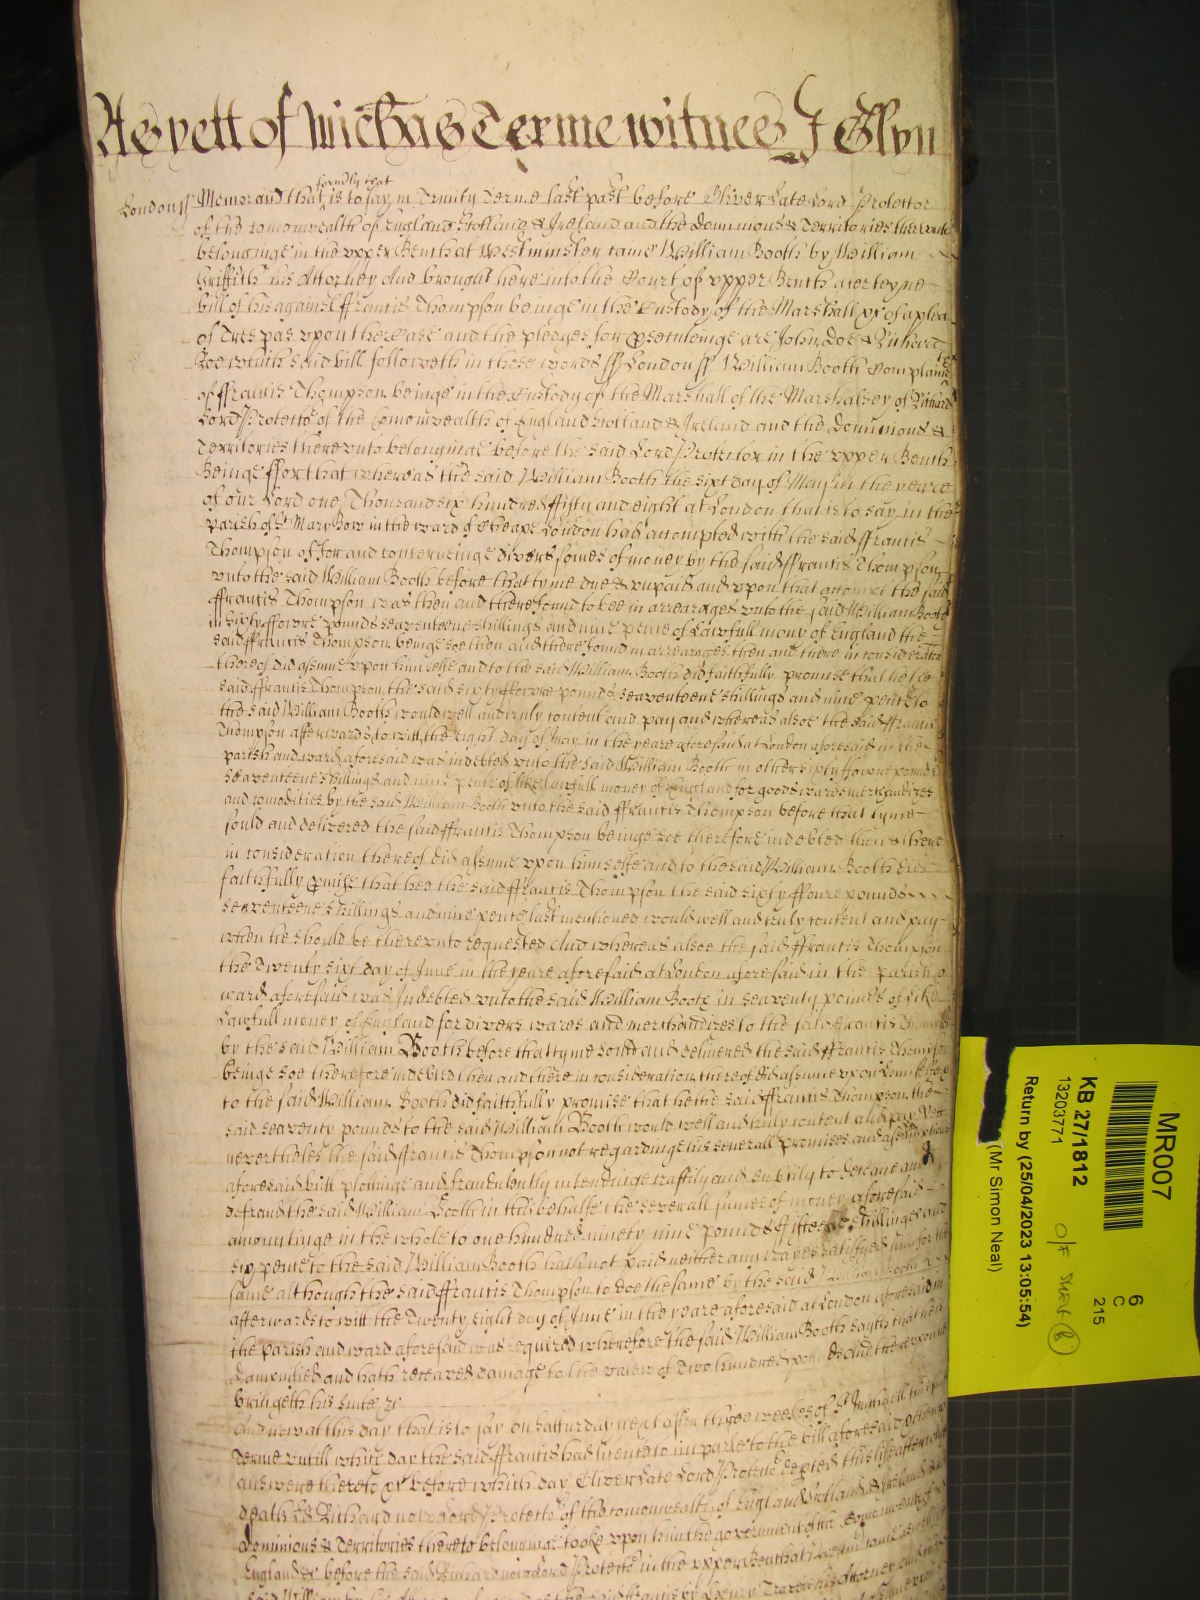 As yett of Michas Terme witnes J Glyn
London ss Memorand that formerly that is to say in Trinity Terme last past before Oliver Late Lord Protector
of the comonwealth of England Scotland & Ireland and the dominions & Territories thereunto
belonginge in the upper Bench at Westminster came William Booth by William
Griffith his Attorney And brought here into the Court of upper Bench a certeyne
bill of his against ffrancis Thompson beinge in the Custody of the Marshall &c of a plea
of Trespas upon the Case and the pledges for prosecuteinge are John Doe & Richard
Roe which said bill followeth in these words ss London ss William Booth Complaines
of ffrancis Thompson beinge in the Custody of the Marshall of the Marshalsey of Richard
Lord Protector of the Comonwealth of England Scotland & Ireland and the dominions &
Territories thereunto belonginge before the said Lord Protector in the upper Bench
Beinge ffor that whereas the said William Booth the sixt day of May in the yeare
of our Lord one Thousand six hundred ffifty and eight at London that is to say in the
parish of St Mary Bow in the ward of Cheape London had accompted with the said ffrancis
Thompson of for and concerninge divers somes of money by the said ffrancis Thompson
unto the said William Booth before that tyme due & unpaid and upon that accompt the said
ffrancis Thompson was then and there found to bee in arrearages unto the said William Booth
in sixty ffowre pounds seaventeene shillings and nine pence of Lawfull mony of England the
said ffrancis Thompson beinge soe then and there found in arrearages then and there in consideracion
thereof did assume upon himselfe and to the said William Booth did faithfully promise that he the
said ffrancis Thompson the said sixty ffowre pounds seaventeene shillings and nine pence to
the said William Booth would well and truly content and pay and whereas alsoe the said ffrancis
Thompson afterwards to witt the eight day of May in the yeare aforesaid at London aforesaid in the
parish and ward aforesaid was indebted unto the said William Booth in other sixty ffowre pounds
seaventeene shillings and nine pence of like lawfull money of England for goods wares merchandizes
and comodities by the said William Booth unto the said ffrancis Thompson before that tyme
sould and delivered the said ffrancis Thompson beinge soe therefore indebted then & there
in consideration thereof did assume upon himselfe and to the said William Booth did
faithfully promise that hee the said ffrancis Thompson the said sixty ffoure pounds
seaventeene shillings and nine pence last mentioned would well and truly content and pay
when he should be thereunto requested And whereas alsoe the said ffrancis Thompson
the Twenty sixt day of June in the yeare aforesaid at London aforesaid in the parish &
ward aforesaid was Indebted unto the said William Booth in seaventy pounds of Like
Lawfull money of England for divers wares and merchandizes to the said ffrancis Thompson
by the said William Booth before that tyme sould and delivered the said ffrancis Thompson
beinge soe therefore indebted then and there in consideration thereof did assume upon himselfe &
to the said William Booth did faithfully promise that he the said ffrancis Thompson the
said seaventy pounds to the said William Booth would well and truly content and pay Yett
nevertheles the said ffrancis Thompson not regardinge his severall promises and assumptions
aforesaid butt plottinge and fraudulently intendinge craftily and subtily to deceave and
defraud the said William Booth in this behalfe the severall sumes of money aforesaid
amountinge in the whole to one hundred ninety nine pounds ffifteene shillinges and
six pence to the said William Booth hath not paid neither any wayes satisfyed him for the
same although the said ffrancis Thompson to doe the same by the said William Booth
afterwards to witt the Twenty eight day of June in the yeare aforesaid at London aforesaid in
the parish and ward aforesaid was required wherefore the said William Booth sayth that he is
dampnified and hath receaved damage to the valew of Two hundred pounds And thereupon he
bringeth his suite &c
And now at this day that is to say on Satturday next after three weekes of St Michaell this
Terme untill which day the said ffrancis had licence to imparle to the bill aforesaid
answere thereto &c before which day Oliver Late Lord Protector departed this life after whose
death Richard now Lord Protector of the comonwealth of England Scotland & Ireland &
dominions & Territories thereto belonginge tooke upon him the government of the Comonwealth of
England & before the said Richard now Lord Protector in the upper Bench at
MR007
6
C
215
KB 27/1812
13203771
Return by (25/04/2023 13:05:54)
(Mr Simon Neal)